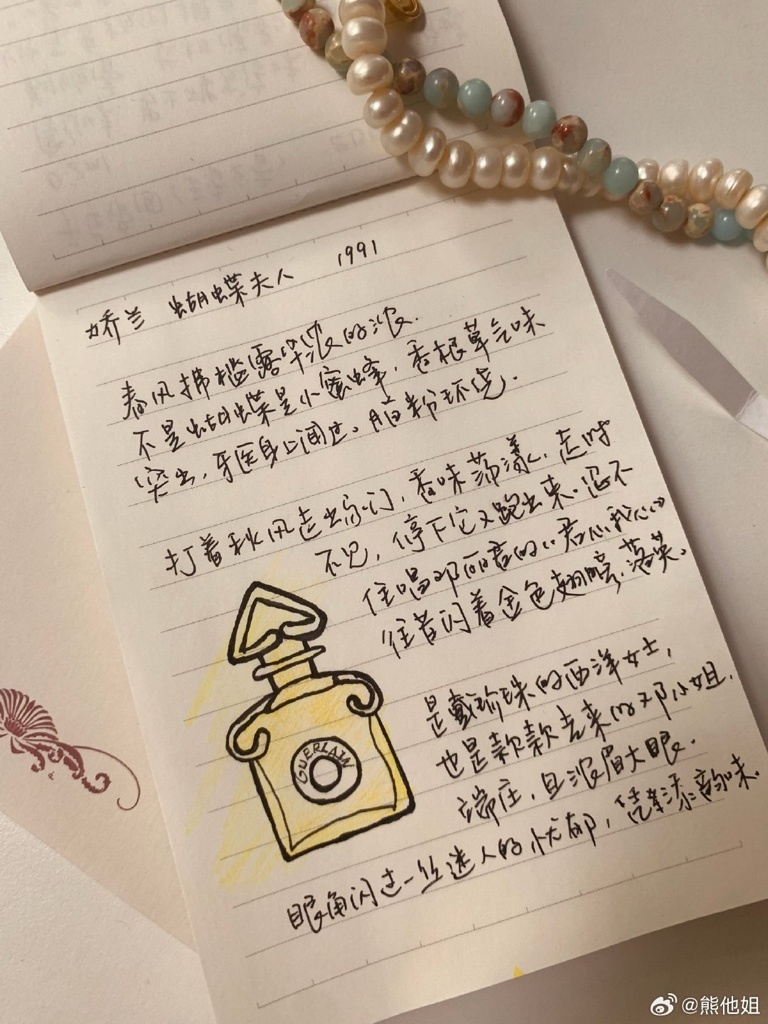 娇兰 蝴蝶夫人 1991
春风拂槛露华浓的浓.
不是蝴蝶是小蜜蜂，香根草气味
突出，牙医身上闻过。脂粉环绕.
打着秋风走出家门，香味荡漾，走时
不见，停下它又跑出来.忍不
住唱邓丽君的《君心我心》
往昔闪着金色翅膀.落英。
是戴珍珠的西洋女士，
也是款款走来的邓小姐.
端庄，且浓眉大眼.
眼角闪过一丝迷人的忧郁，凭添韵味.
GUERLAIN
@熊他姐